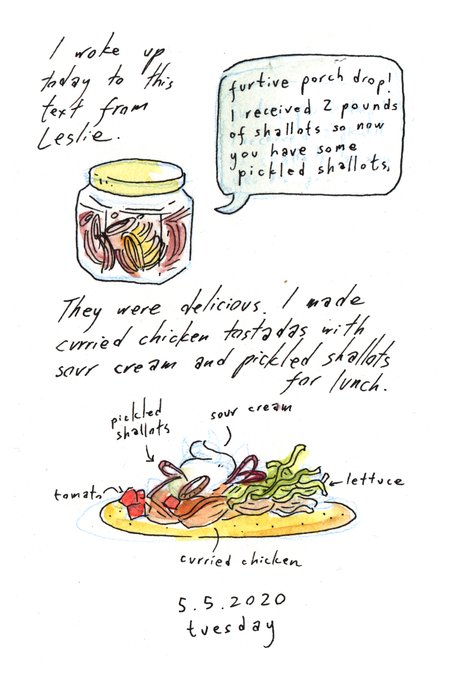 I woke up
today to this
text from
Leslie.
furtive porch drop!
I received 2 pounds
of shallots so now
you have some
pickled shallots.
They were delicious. I made
curried chicken tostadas with
sour cream and pickled shallots
for lunch.
pickled
shallots
sour cream
tomato
lettuce
curried chicken
5.5.2020
tuesday